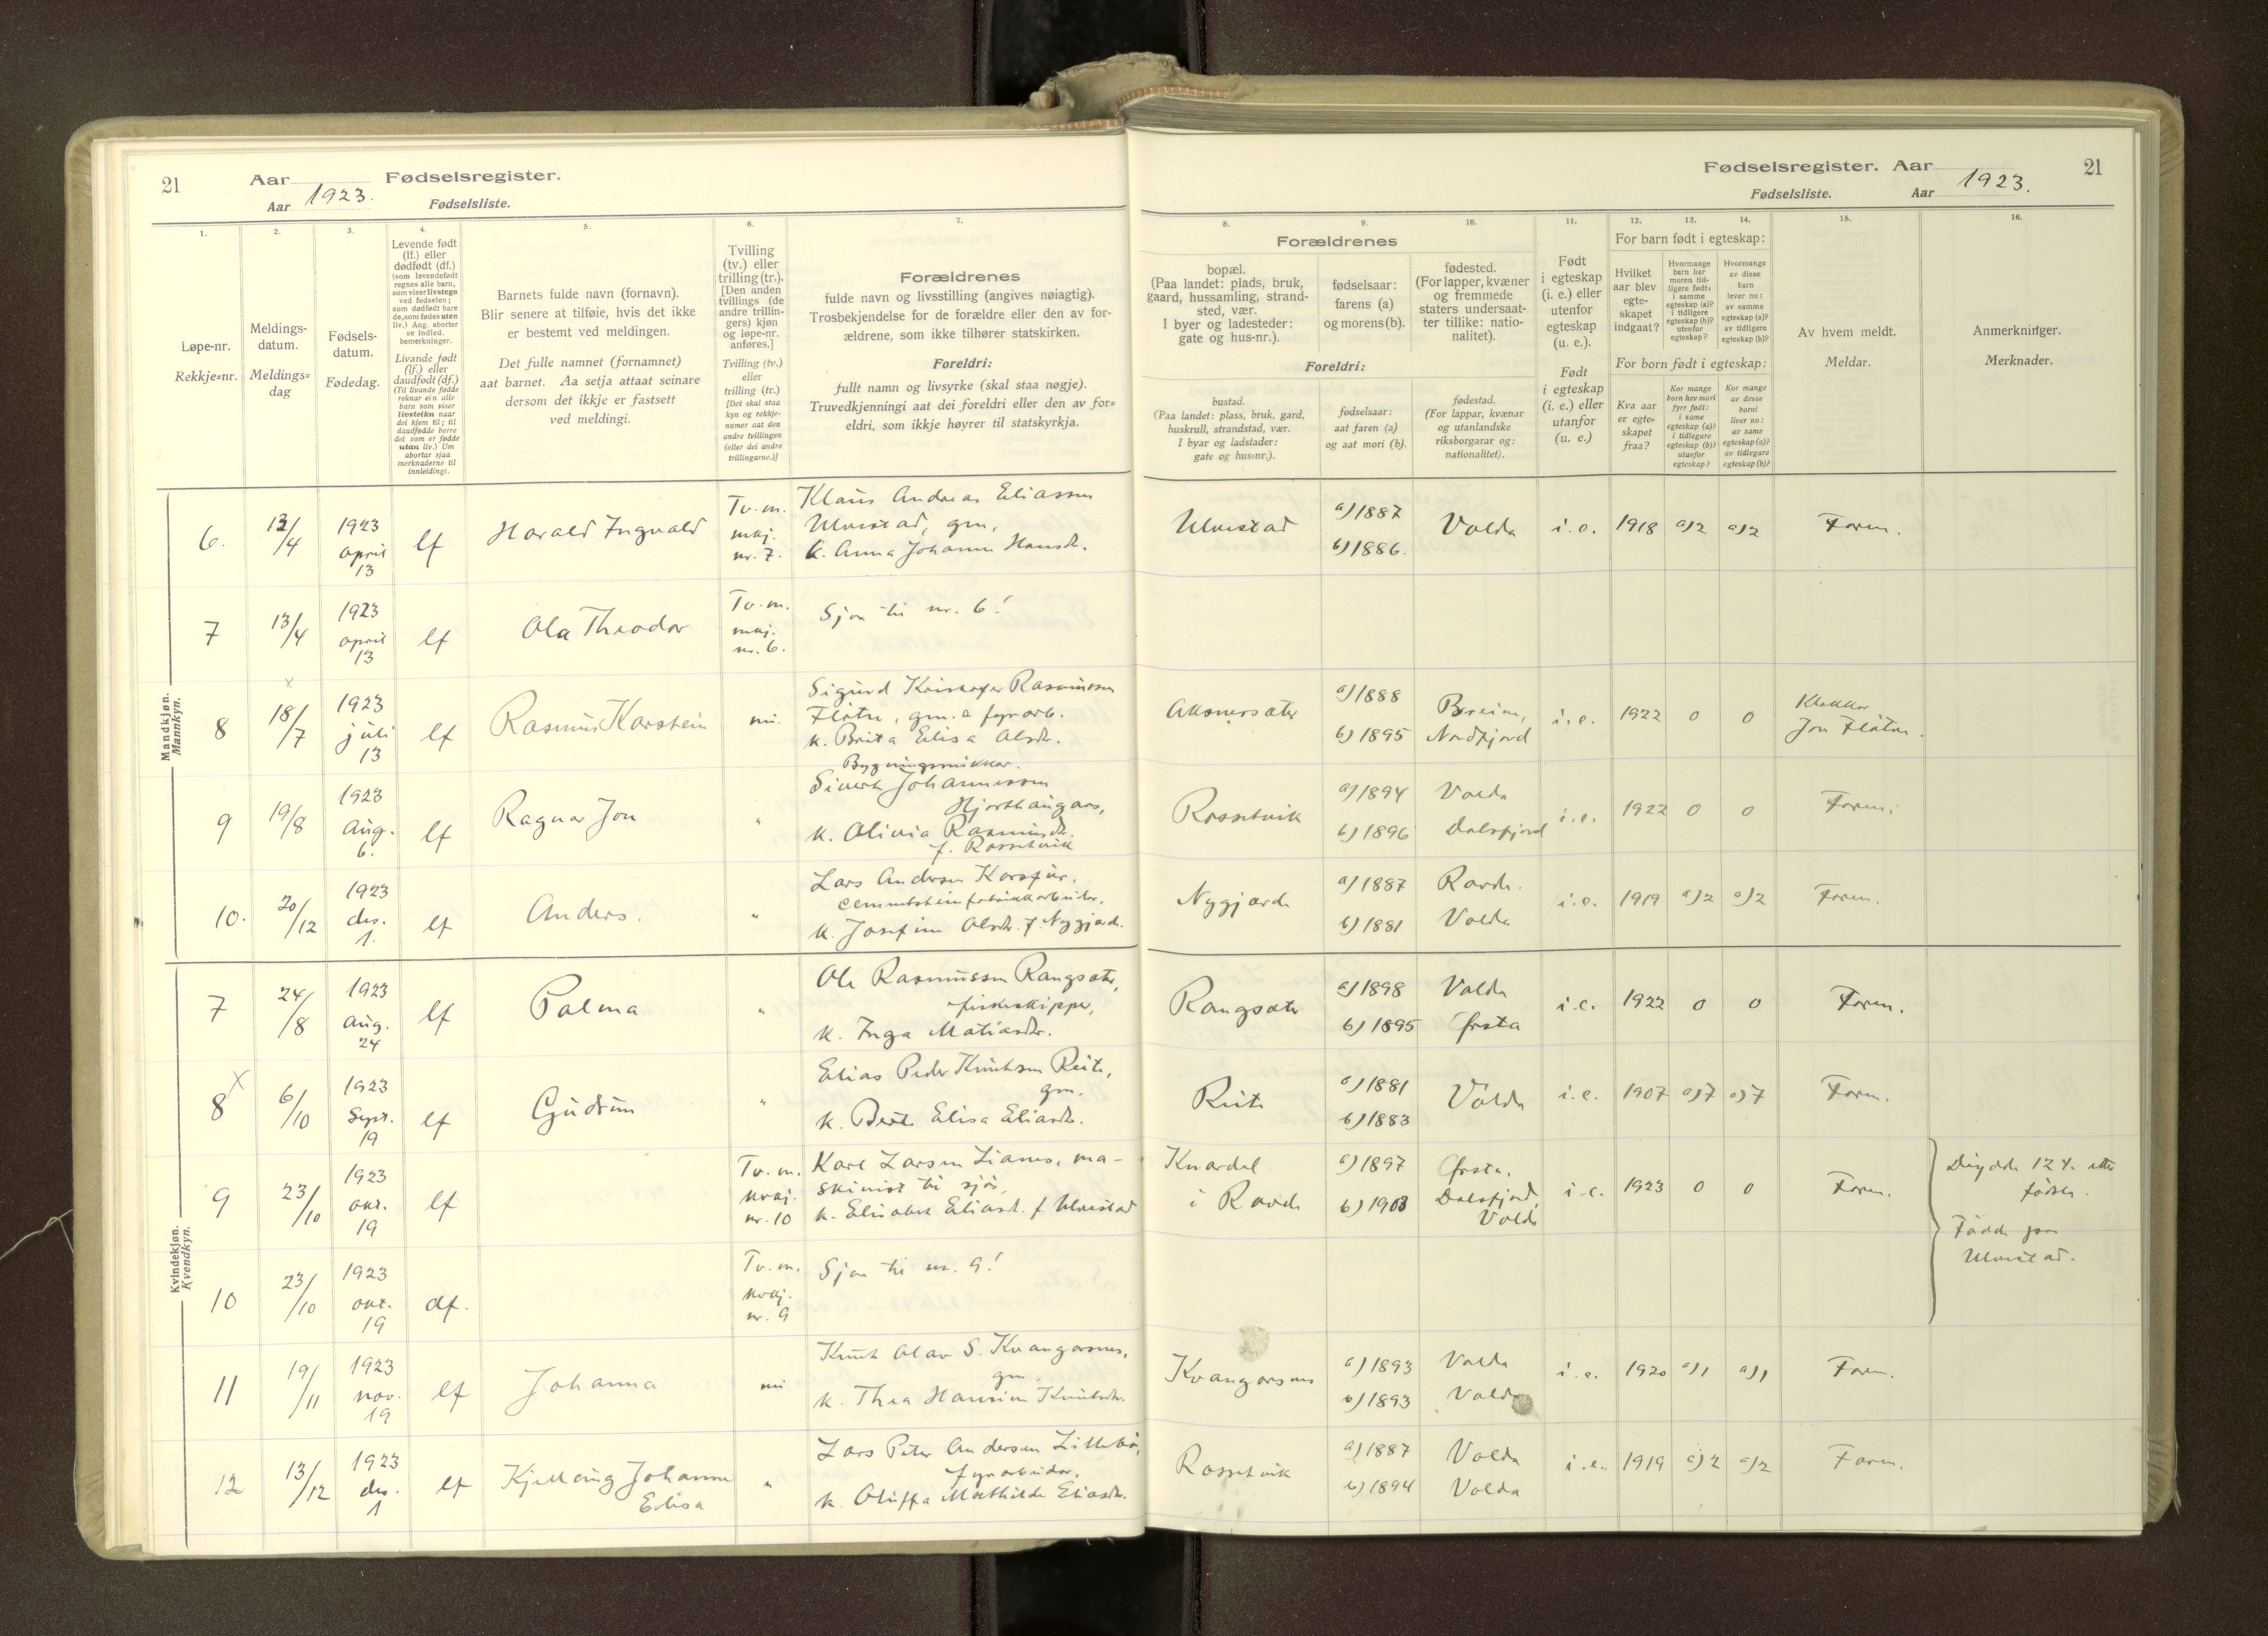 21
Aar
Fødselsregister.
Aar 1923.
Fødselsliste.
1.
2.
3.
4.
5.
6.
7.
Løpe-nr.
Rekkje=nr.
Meldings-
datum.
Meldings=
dag
Fødsels-
datum.
Fødedag.
Levende født
(lf.) eller
dødfødt (df.)
(som levendefødt
regnes alle barn,
som viser livstegn
ved fødselen;
som dødfødt bare
de, som fødes uten
liv.) Ang. aborter
se indled.
bemerkninger.
Livande født
(lf.) eller
daudfødt (df.)
(Til livande fødde
reknar ein alle
barn som viser
livsteikn naar
dei kjem til; til
daudfødde berre
dei som er fødde
utan liv.) Um
abortar sjaa
merknaderne til
innleidingi.
Barnets fulde navn (fornavn).
Blir senere at tilføie, hvis det ikke
er bestemt ved meldingen.
Det fulle namnet (fornamnet)
aat barnet. Aa setja attaat seinare
dersom det ikkje er fastsett
ved meldingi.
Tvilling
(tv.) eller
trilling (tr.).
[Den anden
tvillings (de
andre trillin-
gers) kjøn
og løpe-nr.
anføres.]
Tvilling (tv.)
eller
trilling (tr.)
[Det skal staa
kyn og rekkje-
numer aat den
andre tvillingen
(eller dei andre
trillingarne.)]
Forældrenes
fulde navn og livsstilling (angives nøiagtig).
Trosbekjendelse for de forældre eller den av for-
ældrene, som ikke tilhører statskirken.
Foreldri:
fullt namn og livsyrke (skal staa nøgje).
Truvedkjenningi aat dei foreldri eller den av for=
eldri, som ikkje høyrer til statskyrkja.
Mandkjøn.
Mannkyn.
6.
13/4
1923
april
13
lf
Harald Ingvald
Tv. m.
nr. 7.
Klaus Andreas Eliassen
Ulvestad, gm.
k. Anna Johanna Hansdr.
7
13/4
1923
april
13
lf
Ola Theodor
Tv. m.
nr. 6.
Sjaa til nr. 6!
8
18/7
1923
juli
13
lf
Rasmus Karstein
nei.
Sigurd Kristofer Rasmussen
Flåtn, gm. a fyrarb.
k. Brita Elisa Olsdr.
9
19/8
1923
Aug.
6.
lf
Ragnar Jon
"
Bygningssnikkar.
Sivert Johannessen
Hjorthaugars,
k. Olivia Rasmusdr.
f. Rossetvik
10.
20/12
1923
des.
1.
lf
Anders.
"
Lars Andersen
cementsteinfabrikkarbeider.
k. Josefine Olsdr. f. Nygjærde.
Kvindekjøn.
Kvendkyn.
7
24/8
1923
Aug.
24
lf
Palma
"
Ole Rasmussen Rangsæter,
fiskeskipper,
k. Inga Matiasdr.
8 x
6/10
1923
Sept.
19
lf
Gudrun
"
Elias Peder Knutsen Reite,
gm.
k. Berte Elisa Eliasdr.
9
23/10
1923
okt.
19
lf
Tv. m.
kvkj.
nr. 10
Karl Larsen Lianes, ma-
skinist til sjøs,
k. Elisabet Eliasd. f Ulvestad
10
23/10
1923
okt.
19
df.
Tv. m.
kvkj.
nr. 9
Sjaa til nr. 9!
11
19/11
1923
nov.
19
lf
Johanna
nei
Knut Olav S. Kvangarsnes,
gm.
k. Thea Hansine Knutsdr.
12
13/12
1923
des.
1
lf
Kjellaug Johanne
Elisa
"
Lars Peter Andersen Lillebø,
fyrarbeider,
k. Oluffa Mathilde Eliasdr.
Fødselsregister. Aar
21
Fødselsliste.
Aar 1923.
8.
9.
10.
11.
12.
13.
14.
15.
16.
Forældrenes
bopæl.
(Paa landet: plads, bruk,
gaard, hussamling, strand-
sted, vær.
I byer og ladesteder:
gate og hus-nr.).
fødselsaar:
farens (a)
og morens (b).
fødested.
(For lapper, kvæner
og fremmede
staters undersaat-
ter tillike: natio-
nalitet).
Foreldri:
bustad.
(Paa landet: plass, bruk, gard,
huskrull, strandstad, vær.
I byar og ladstader:
gate og hus=nr.).
fødselsaar:
aat faren (a)
og aat mori (b).
fødestad.
(For lappar, kvænar
og utanlandske
riksborgarar og:
nationalitet).
Født
i egteskap
(i. e.) eller
utenfor
egteskap
(u. e.).
Født
i egteskap
(i. e.) eller
utanfor
(u. e.)
For barn født i egteskap:
Hvilket
aar blev
egte-
skapet
indgaat?
Hvormange
barn har
moren tid-
ligere født:
i samme
egteskap (a)?
i tidligere
egteskap (b)?
utenfor
egteskap?
Hvormange
av disse
barn
lever nu:
av samme
egteskap (a)?
av tidligere
egteskap (b)?
For born født i egteskap:
Kva aar
er egte=
skapet
fraa?
Kor mange
born hev mori
fyrr født:
i same
egteskap (a)?
i tidlegare
egteskap (b)?
utanfor
egteskap?
Kor mange
av desse
borni
liver no:
av same
egteskap (a)?
av tidlegare
egteskap (b)?
Av hvem meldt.
Meldar.
Anmerkninger.
Merknader.
Ulvestad
a) 1887
b) 1886.
Volda
i. e.
1918
a) 2
a) 2
Faren.
Aksnesæter
a) 1888
b) 1895
Breim,
Nordfjord
i. e.
1922
0
0
Klokkar
Jon Flåtn.
Rossetvik
a) 1894
b) 1896
Volda
Dalsfjord
i. e.
1922
0
0
Faren.
Nygjærde
a) 1887
b) 1881
Rovde.
Volda
i. e.
1919
a) 2
a) 2
Faren.
Rangsæter
a) 1898
b) 1895
Volda
Ørsta
i. e.
1922
0
0
Faren.
Reite
a) 1881
b) 1883
Volda
i. e.
1907
a) 7
a) 7
Faren.
Knardal
i Rovde
a) 1897
b) 1903
Ørsta.
Dalsfjord,
Volda
i. e.
1923
0
0
Faren.
Døydde 12 t. etter
fødsle.
Fødde paa
Ulvestad.
Kvangarsnes
a) 1893
b) 1893
Volda
Volda
i. e.
1920
a) 1
a) 1
Faren.
Rossetvik
a) 1887
b) 1894
Volda
Volda
i. e.
1919
a) 2
a) 2
Faren.